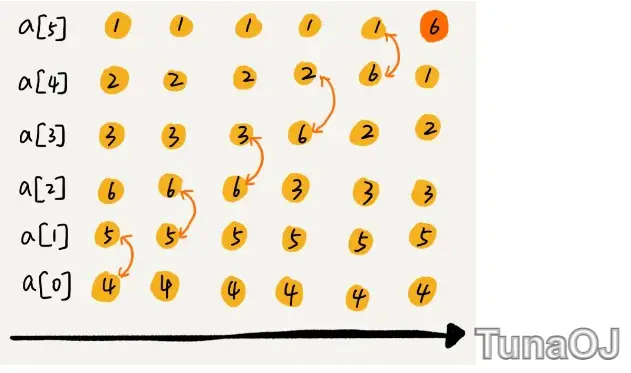 a[5] 1 1 1 1 1 6
a[4] 2 2 2 2 6 1
a[3] 3 3 3 6 2 2
a[2] 6 6 6 3 3 3
a[1] 5 5 5 5 5 5
a[0] 4 4 4 4 4 4
TunaOJ